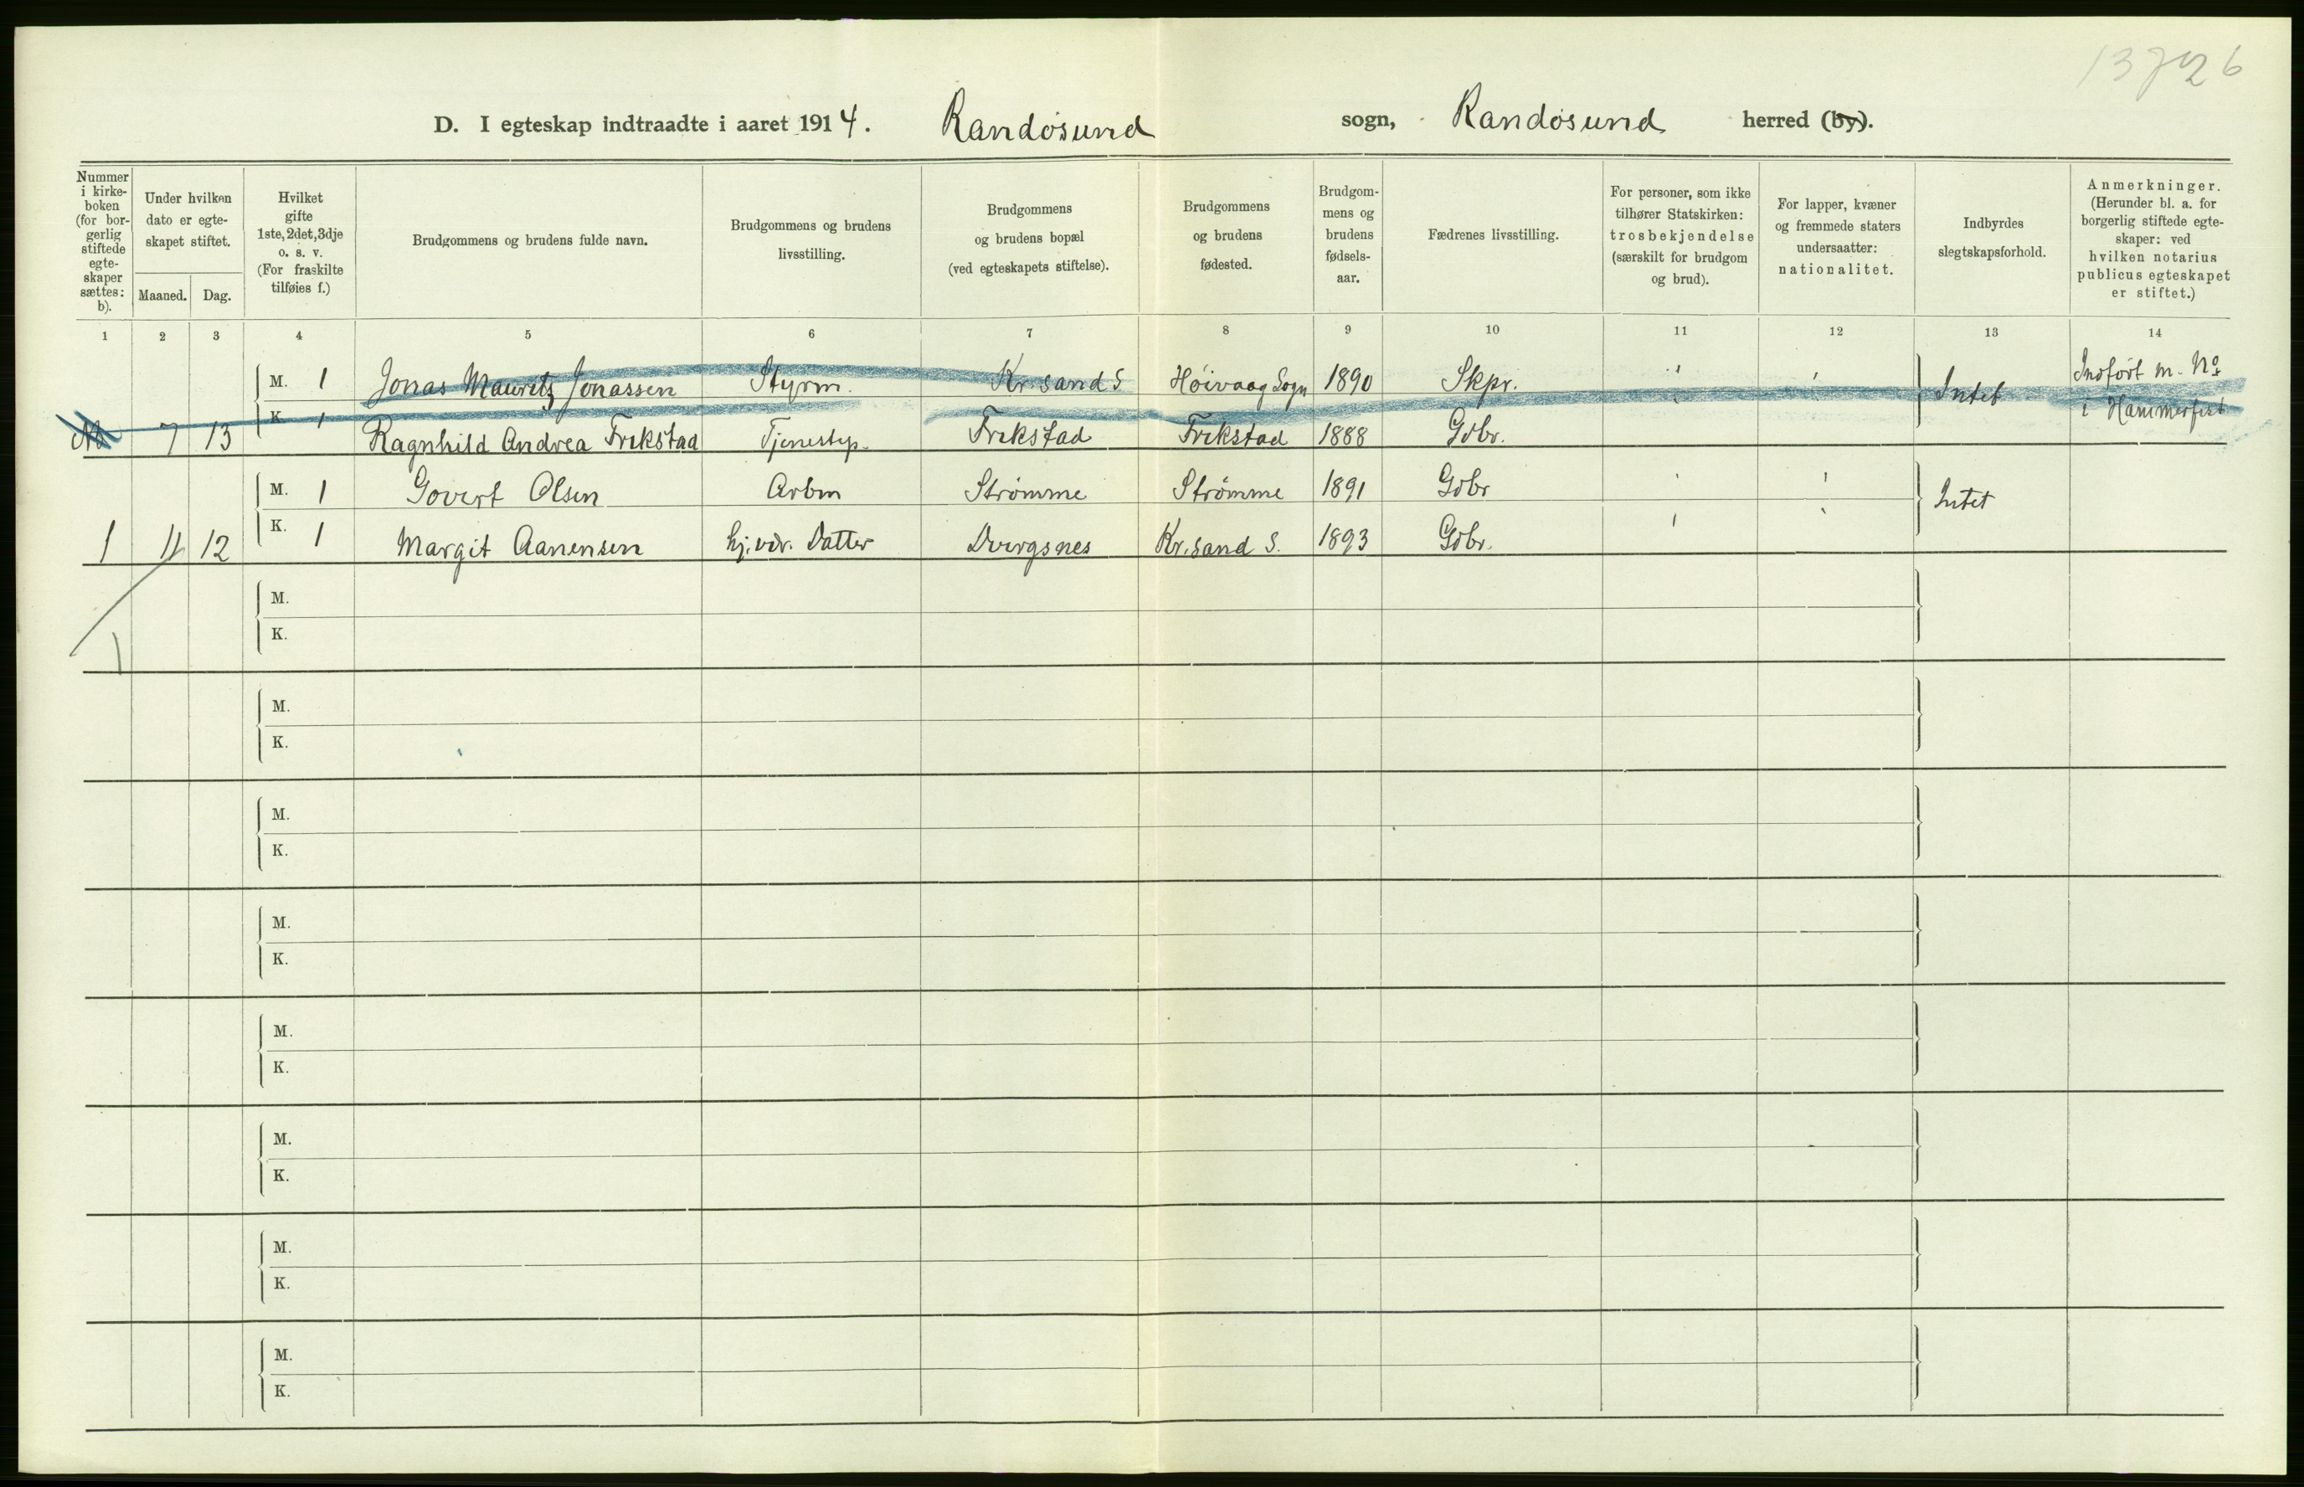 D. I egteskap indtraadte i aaret 1914. Randøsund sogn, Randøsund herred (by).
Nummer i kirke- boken (for bor- gerlig stiftede egte- skaper sættes: b).
Under hvilken dato er egte- skapet stiftet.
Maaned. Dag.
Hvilket gifte 1ste, 2det, 3dje o. s. v. (For fraskilte tilføies f.)
Brudgommens og brudens fulde navn.
Brudgommens og brudens livsstilling.
Brudgommens og brudens bopæl (ved egteskapets stiftelse).
Brudgommens og brudens fødested.
Brudgom- mens og brudens fødsels- aar.
Fædrenes livsstilling.
For personer, som ikke tilhører Statskirken: trosbekjendelse (særskilt for brudgom og brud).
For lapper, kvæner og fremmede staters undersaatter: nationalitet.
Indbyrdes slegtskapsforhold.
Anmerkninger. (Herunder bl. a. for borgerlig stiftede egte- skaper: ved hvilken notarius publicus egteskapet er stiftet.)
1 2 3 4 5 6 7 8 9 10 11 12 13 14
M. 1 Jonas Mauretz Jonassen Styrm. Kr.sand S Høivaag Sogn 1890 Skpr. Intet Indført m. No
7 13 K. 1 Ragnhild Andrea Frikstad Tjenestep. Frikstad Frikstad 1888 Gbr. i Hammerfest
M. 1 Govert Olsen Arbm Strømme Strømme 1891 Gbr Intet
1 11 12 K. 1 Margit Aanensen hj.vær. Datter Dvergsnes Kr.sand S. 1893 Gbr.
M.
K.
M.
K.
M.
K.
M.
K.
M.
K.
M.
K.
M.
K.
M.
K.